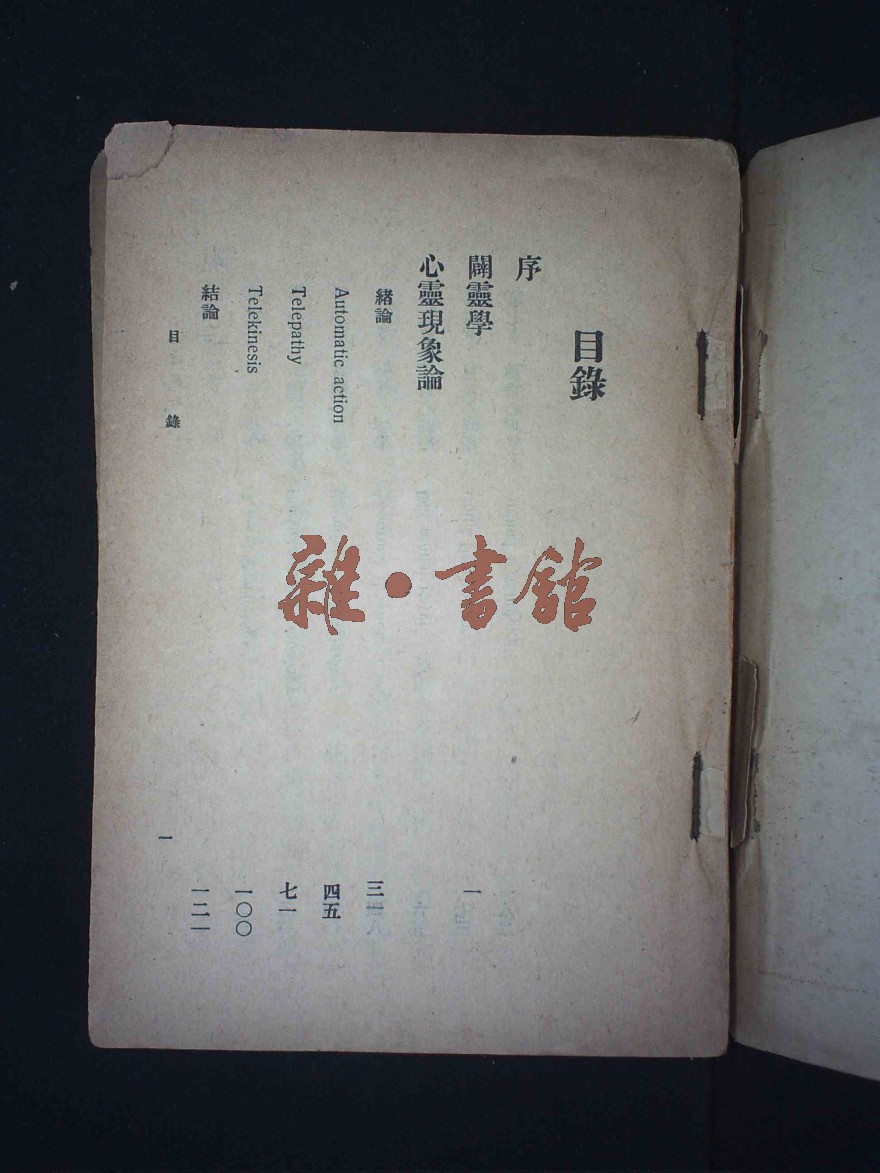 目錄
序
闢靈學 一
心靈現象論
緒論 三一
Automatic action 四五
Telepathy 七一
Telekinesis 一〇〇
結論 一二一
目錄 一
雜・書館